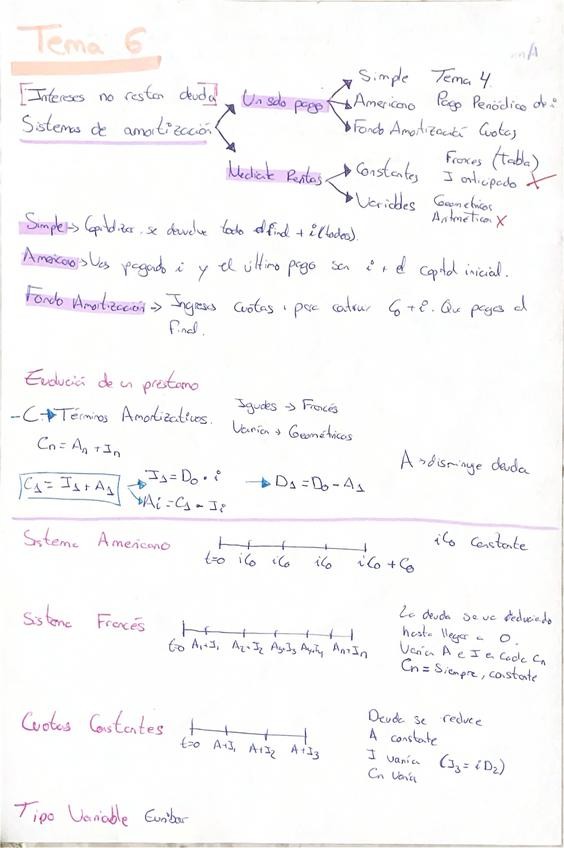 Tema 6
[Intereses no restan deuda]
Sistemas de amortización
Un solo pago
Simple Tema 4.
Americano Pago Periódico de i
Fondo Amortización Cuotas
Mediante Rentas
Constantes Frances (tabla)
I anticipado X
Variables Geométricos
Aritmético X
Simple → Capitalizar. se devuelve todo al final + i (todos).
Americano → Vas pagando i y el último pago son i + el capital inicial.
Fondo Amortización → Ingresas cuotas, para Co + i. Que pagas al
final.
Evolución de un préstamo
- C → Términos Amortizativos.
Iguales → Francés
Varía → Geométricos
Cn = An + In
A → disminuye deuda
C1 = I1 + A1
I1 = D0 · i
Ai = C1 - Ii
→ D1 = D0 - A1
Sistema Americano
t=0 iCo iCo iCo iCo + Co
iCo Constante
Sistema Francés
t=0 A1+I1 A2+I2 A3+I3 A4+I4 An+In
La deuda se va reduciendo
hasta llegar a 0.
Varía A e I en cada Cn
Cn = Siempre, constante
Cuotas Constantes
t=0 A+I1 A+I2 A+I3
Deuda se reduce
A constante
I varía (I3 = iD2)
Cn Varía
Tipo Variable Euribor